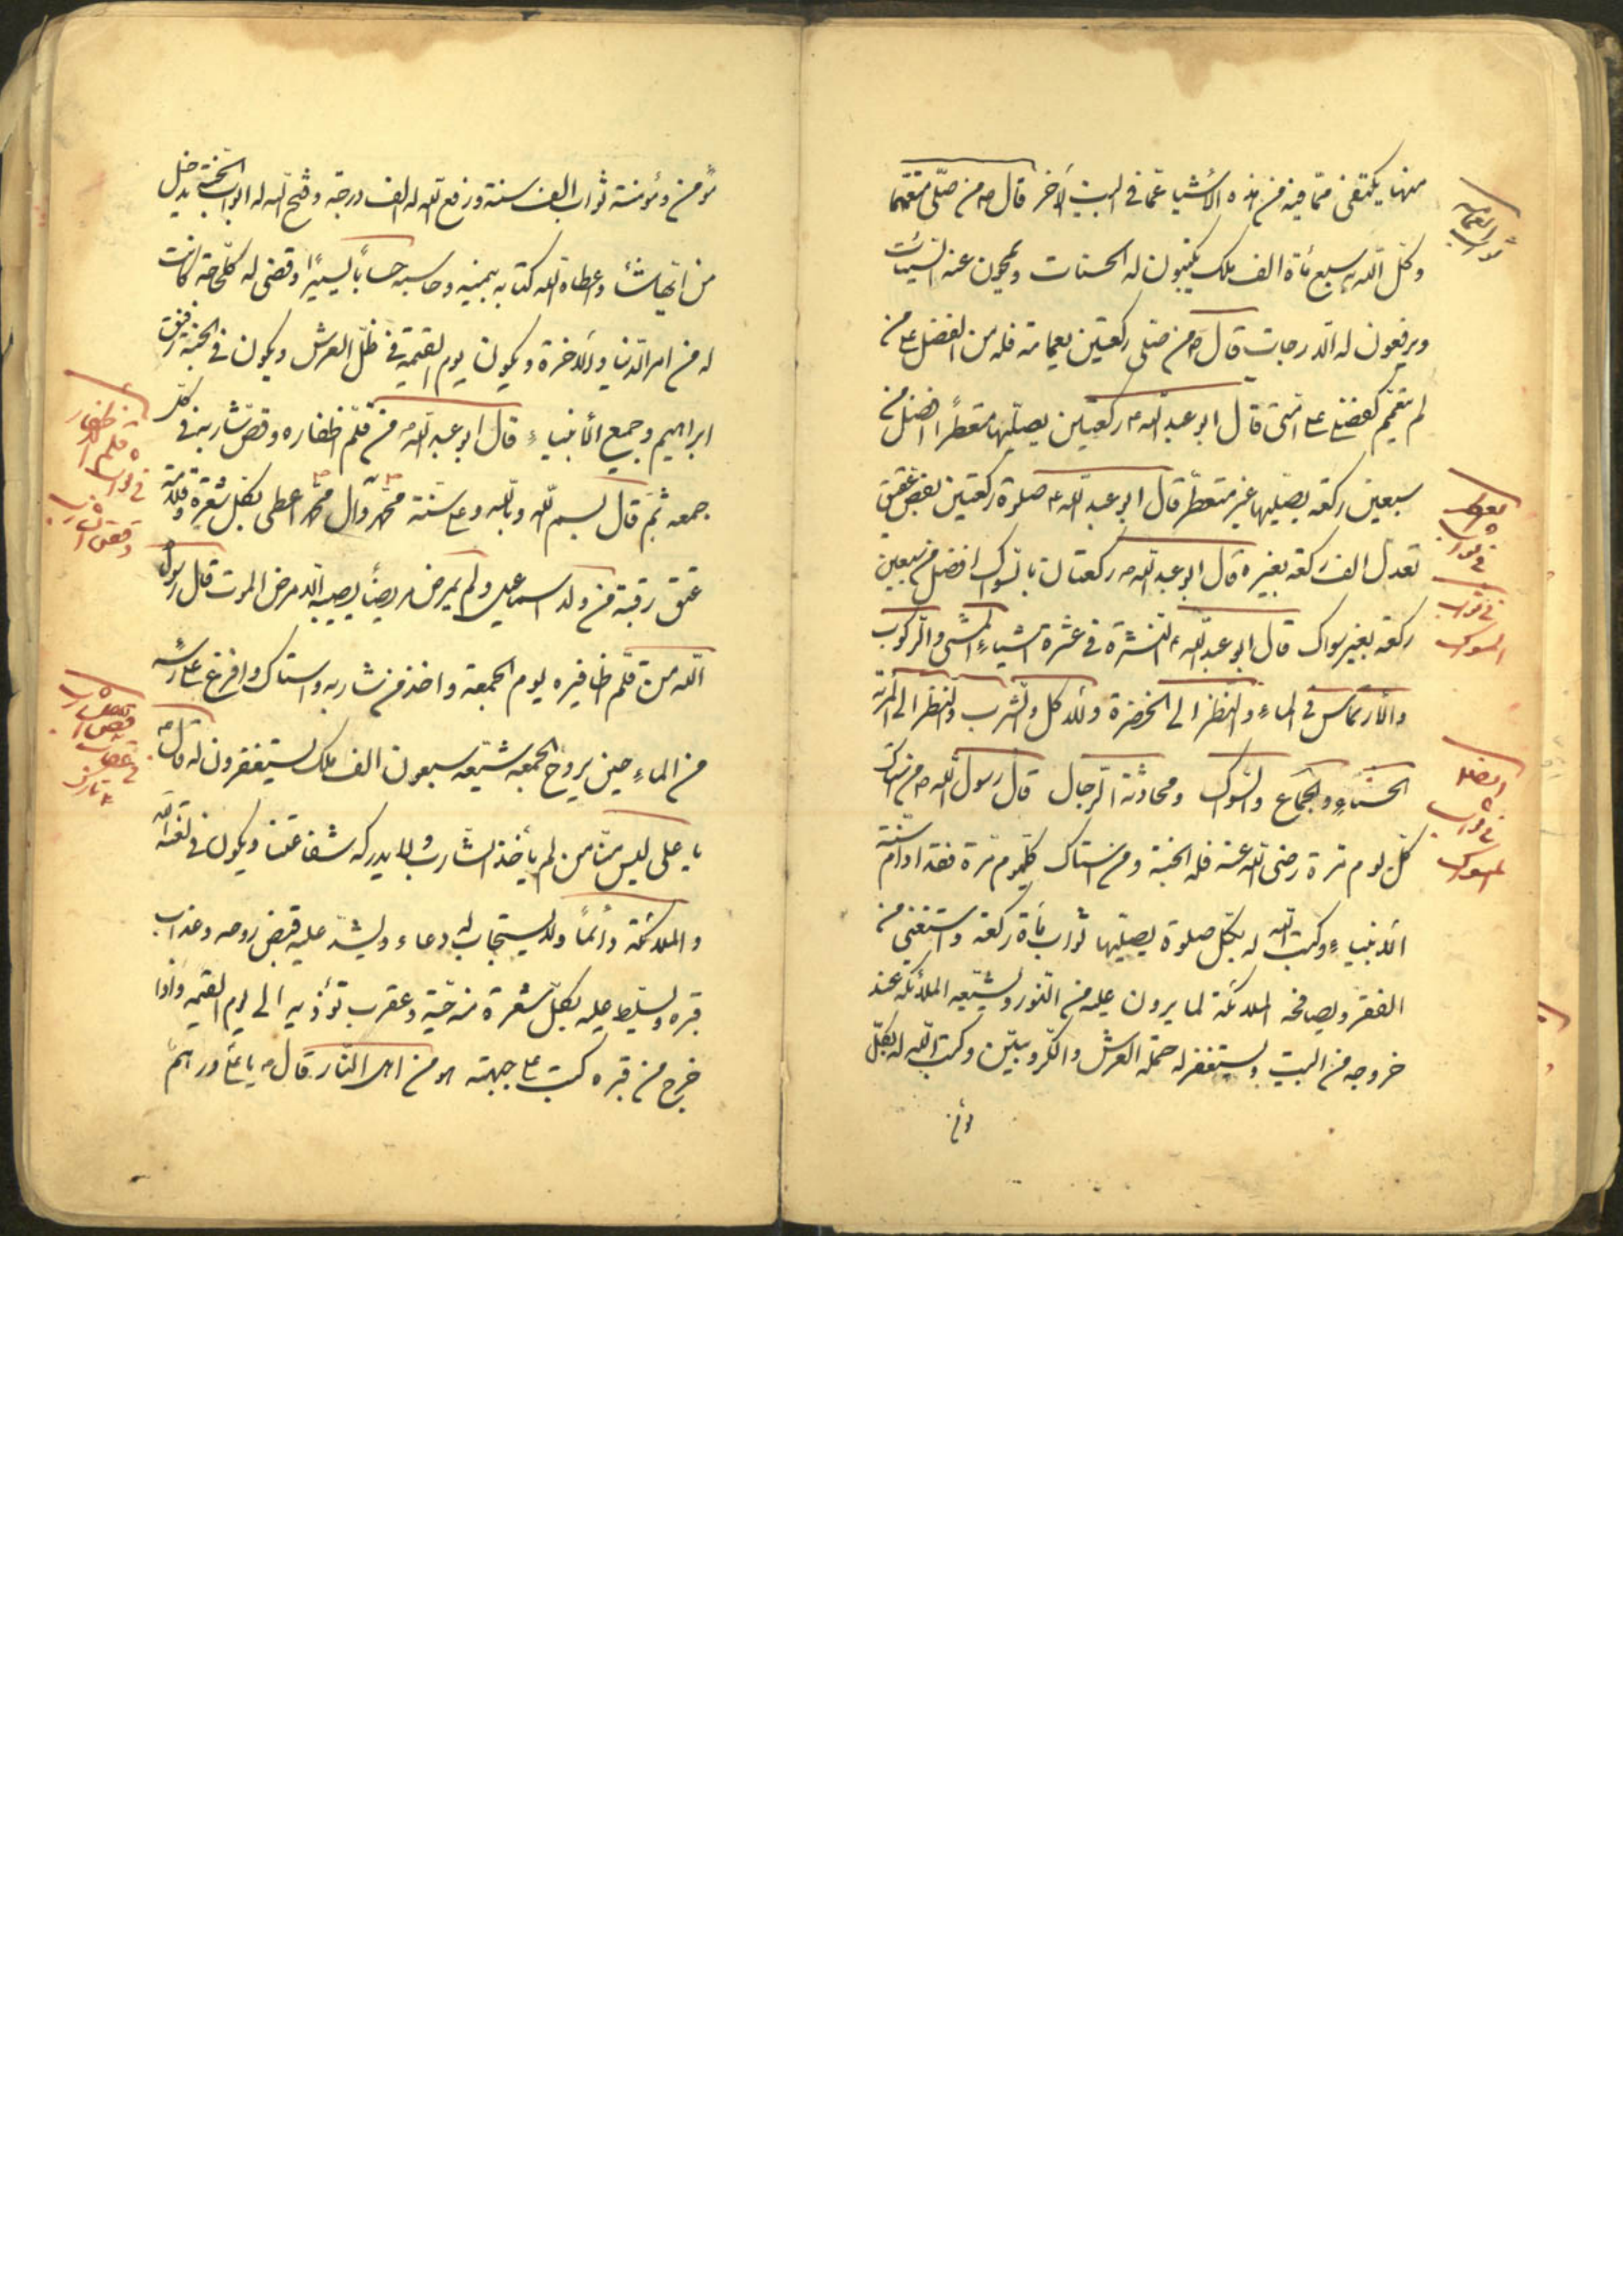 منها يكتفى ممّا فيه من هذه الأشيا عمّا فى البيت الآخر قال ص من صلّى متعمّما
وكّل اللّه به سبع مأة الف ملك يكتبون له الحسنات ويمحون عنه السّيئات
ويرفعون له الدّرجات قال ص من صلى ركعتين بعمامة فله من الفضل على من
لم يتعمّم كفضلى على امّتى قال ابو عبد اللّه ع ركعتين يصلّيها متعطرًا افضل من
سبعين ركعه يصلّيها غير متعطّر قال ابو عبد اللّه ع صلوة ركعتين بفصّ عقيق
تعدل الف ركعه بغيره قال ابو عبد اللّه ع ركعتان بالسّواك افضل من سبعين
ركعه بغير سواك قال ابو عبد اللّه ع النشرة فى عشرة اشياء المشى والرّكوب
والأرتماس فى الماء والنظر الى الخضرة والاكل والشّرب والنظر الى المرئة
الحسناء والجماع والسّواك ومحادثة الرّجال قال رسول اللّه ص من استاك
كلّ يوم مرة رضى اللّه عنه فله الجنة ومن استاك كلّ يوم مرة فقد ادام سنّة
الانبياء وكتب اللّه له بكلّ صلوة يصلّيها ثواب مأة ركعة واستغنى من
الفقر ويصافحه الملائكة لما يرون عليه من النّور وليشيّعه الملائكة عند
خروجه من البيت وليستغفر له حملة العرش والكرّوبيّين وكتب اللّه له بكلّ
مؤمن
ثواب العمامة
فى ثواب
فى ثواب
السواك
ايضا
فى ثواب
السواك
مؤمن ومؤمنة ثواب الف سنة ورفع اللّه له الف درجة وفتح اللّه له ابواب الجنّة يدخل
من ايّها شاء واعطاه اللّه كتابه بيمينه وحاسبه حسابًا يسيرًا وقضى له كلّ حاجة كانت
له من امر الدّنيا والاخرة ويكون يوم القيمة فى ظلّ العرش ويكون فى الجنّة رفيق
ابراهيم وجميع الأنبياء ع قال ابو عبد اللّه ع من قلّم اظفاره وقصّ شاربه فى كلّ
جمعه ثمّ قال بسم اللّه وباللّه وعلى سنّة محمّد وال محمّد اعطى بكلّ شعرة وقلامة
عتق رقبة من ولد اسماعيل ولم يمرض مريضًا يصيبه الّا مرض الموت قال رسول
اللّه من قلّم اظافيره يوم الجمعة واخذ من شاربه واستاك وافرغ على رأسه
من الماء حين يروح الجمعه شيّعه سبعون الف ملك يستغفرون له قال ص
يا على ليس منّا من لم يأخذ الشّارب ولا يدركه شفاعتنا ويكون فى لعنة اللّه
والملائكة دائمًا ولا يستجاب له دعاء ويشدّ عليه قبض روحه وعذاب
قبره وليسلّط عليه بكلّ شعرة منه حيّة وعقرب تؤذيه الى يوم القيمه واذا
خرج من قبره كتب على جبهته هو من اهل النّار قال ص يا على درهم
فى ثواب قلم الاظفار
وقص الشارب
قص الشارب